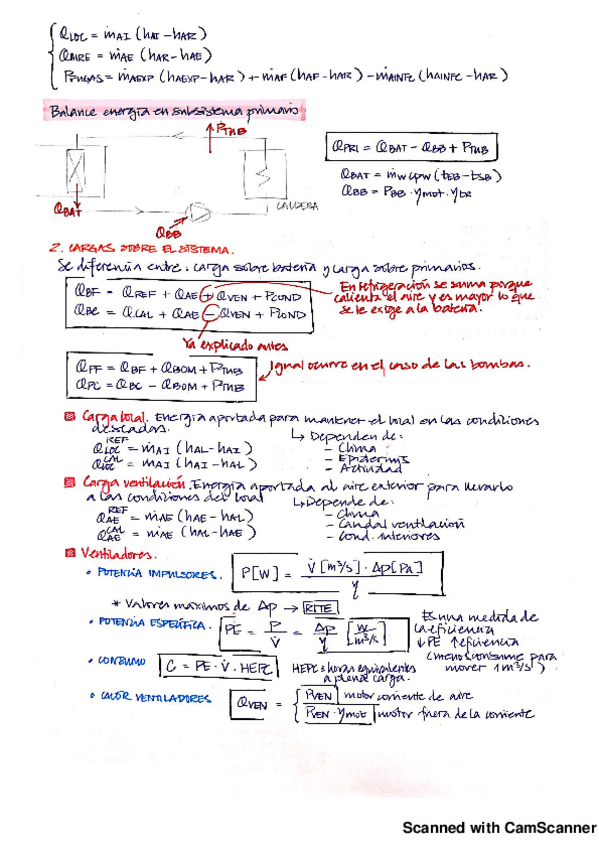 Q̇LOC = ṁAI (hAI - hAR)
Q̇AIRE = ṁAE (hAR - hAE)
PFUGAS = ṁAEXP (hAEXP - hAR) + ṁAF (hAF - hAR) - ṁAINFC (hAINFC - hAR)
Balance energía en subsistema primario
PTUB
QPRI = QBAT - QBB + PTUB
QBAT = ṁw cpw (tEB - tSB)
QBB = PBB · ηmot · ηtr
QBAT
CALDERA
QBB
2. CARGAS SOBRE EL SISTEMA.
Se diferencia entre: carga sobre batería y carga sobre primarios.
QBF = QREF + QAE + QVEN + PCOND
QBC = QCAL + QAE - QVEN + PCOND
En refrigeración se suma porque
calienta el aire y es mayor lo que
se le exige a la batería.
Ya explicado antes
QPF = QBF + QBOM + PTUB
QPC = QBC - QBOM + PTUB
Igual ocurre en el caso de las bombas.
Carga local. Energía aportada para mantener el local en las condiciones
deseadas.
↳ Dependen de:
QLOC REF = ṁAI (hAL - hAI)
- Clima
QLOC CAL = ṁAI (hAI - hAL)
- Epidermis
- Actividad
Carga ventilación. Energía aportada al aire exterior para llevarlo
a las condiciones del local
↳ Depende de:
QAE REF = ṁAE (hAE - hAL)
- Clima
- Caudal ventilación
QAE CAL = ṁAE (hAL - hAE)
- Cond. interiores
Ventiladores.
• POTENCIA IMPULSORES. P[W] = V̇[m³/s] · Δp[Pa] / η
* Valores máximos de Δp → RITE
• POTENCIA ESPECÍFICA. PE = P / V̇ = Δp / η [W / m³/s]
Es una medida de
la eficiencia
↓PE ↑eficiencia
(menos consume para
mover 1 m³/s)
• CONSUMO C = PE · V̇ · HEPC
HEPC = horas equivalentes
a plena carga.
• CALOR VENTILADORES QVEN = { PVEN motor corriente de aire
PVEN · ηmot motor fuera de la corriente
Scanned with CamScanner